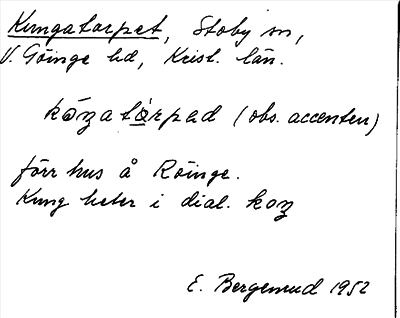 Kungatorpet, Stoby sn,
V. Göinge hd, Krist. län.
kóŋatὸrpad (obs. accenten)
förr hus å Röinge.
Kung heter i dial. koŋ
E. Bergemud 1952